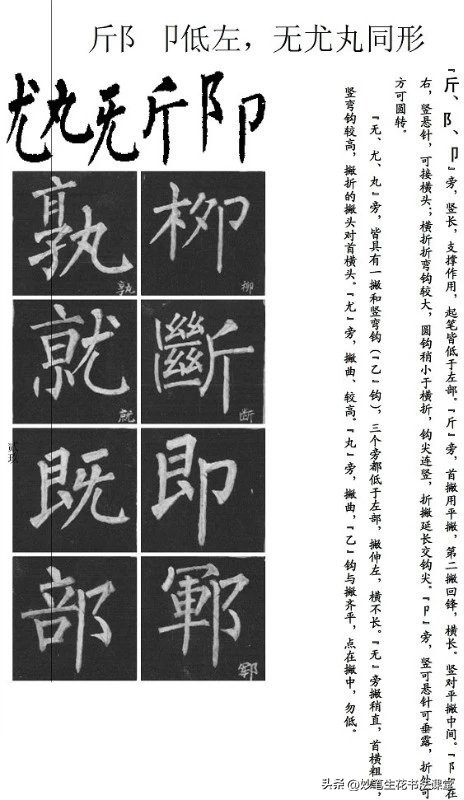 斤阝 卩低左，无尤丸同形
『斤、阝、卩』旁，竖长，支撑作用，起笔皆低于左部。『斤』旁，首撇用平撇，第二撇回锋，横长。竖对平撇中间。『阝』在
右，竖悬针，可接横头；横折折弯钩较大，圆钩稍小于横折，钩尖连竖，折撇延长交钩尖。『卩』旁，竖可悬针可垂露，折处可
方可圆转。
『无、尤、丸』旁，皆具有一撇和竖弯钩（『乙』钩），三个旁都低于左部，撇伸左，横不长。『无』旁撇稍直，首横粗，
竖弯钩较高，撇折的撇头对首横头。『尤』旁，撇曲、较高。『丸』旁，撇曲，『乙』钩与撇齐平，点在撇中，勿低。
尤丸旡斤阝卩
孰 孰 柳 柳
就 就 斷 断
既 即
部 鄆 鄆
贰玖
头条 @妙笔生花书法课堂